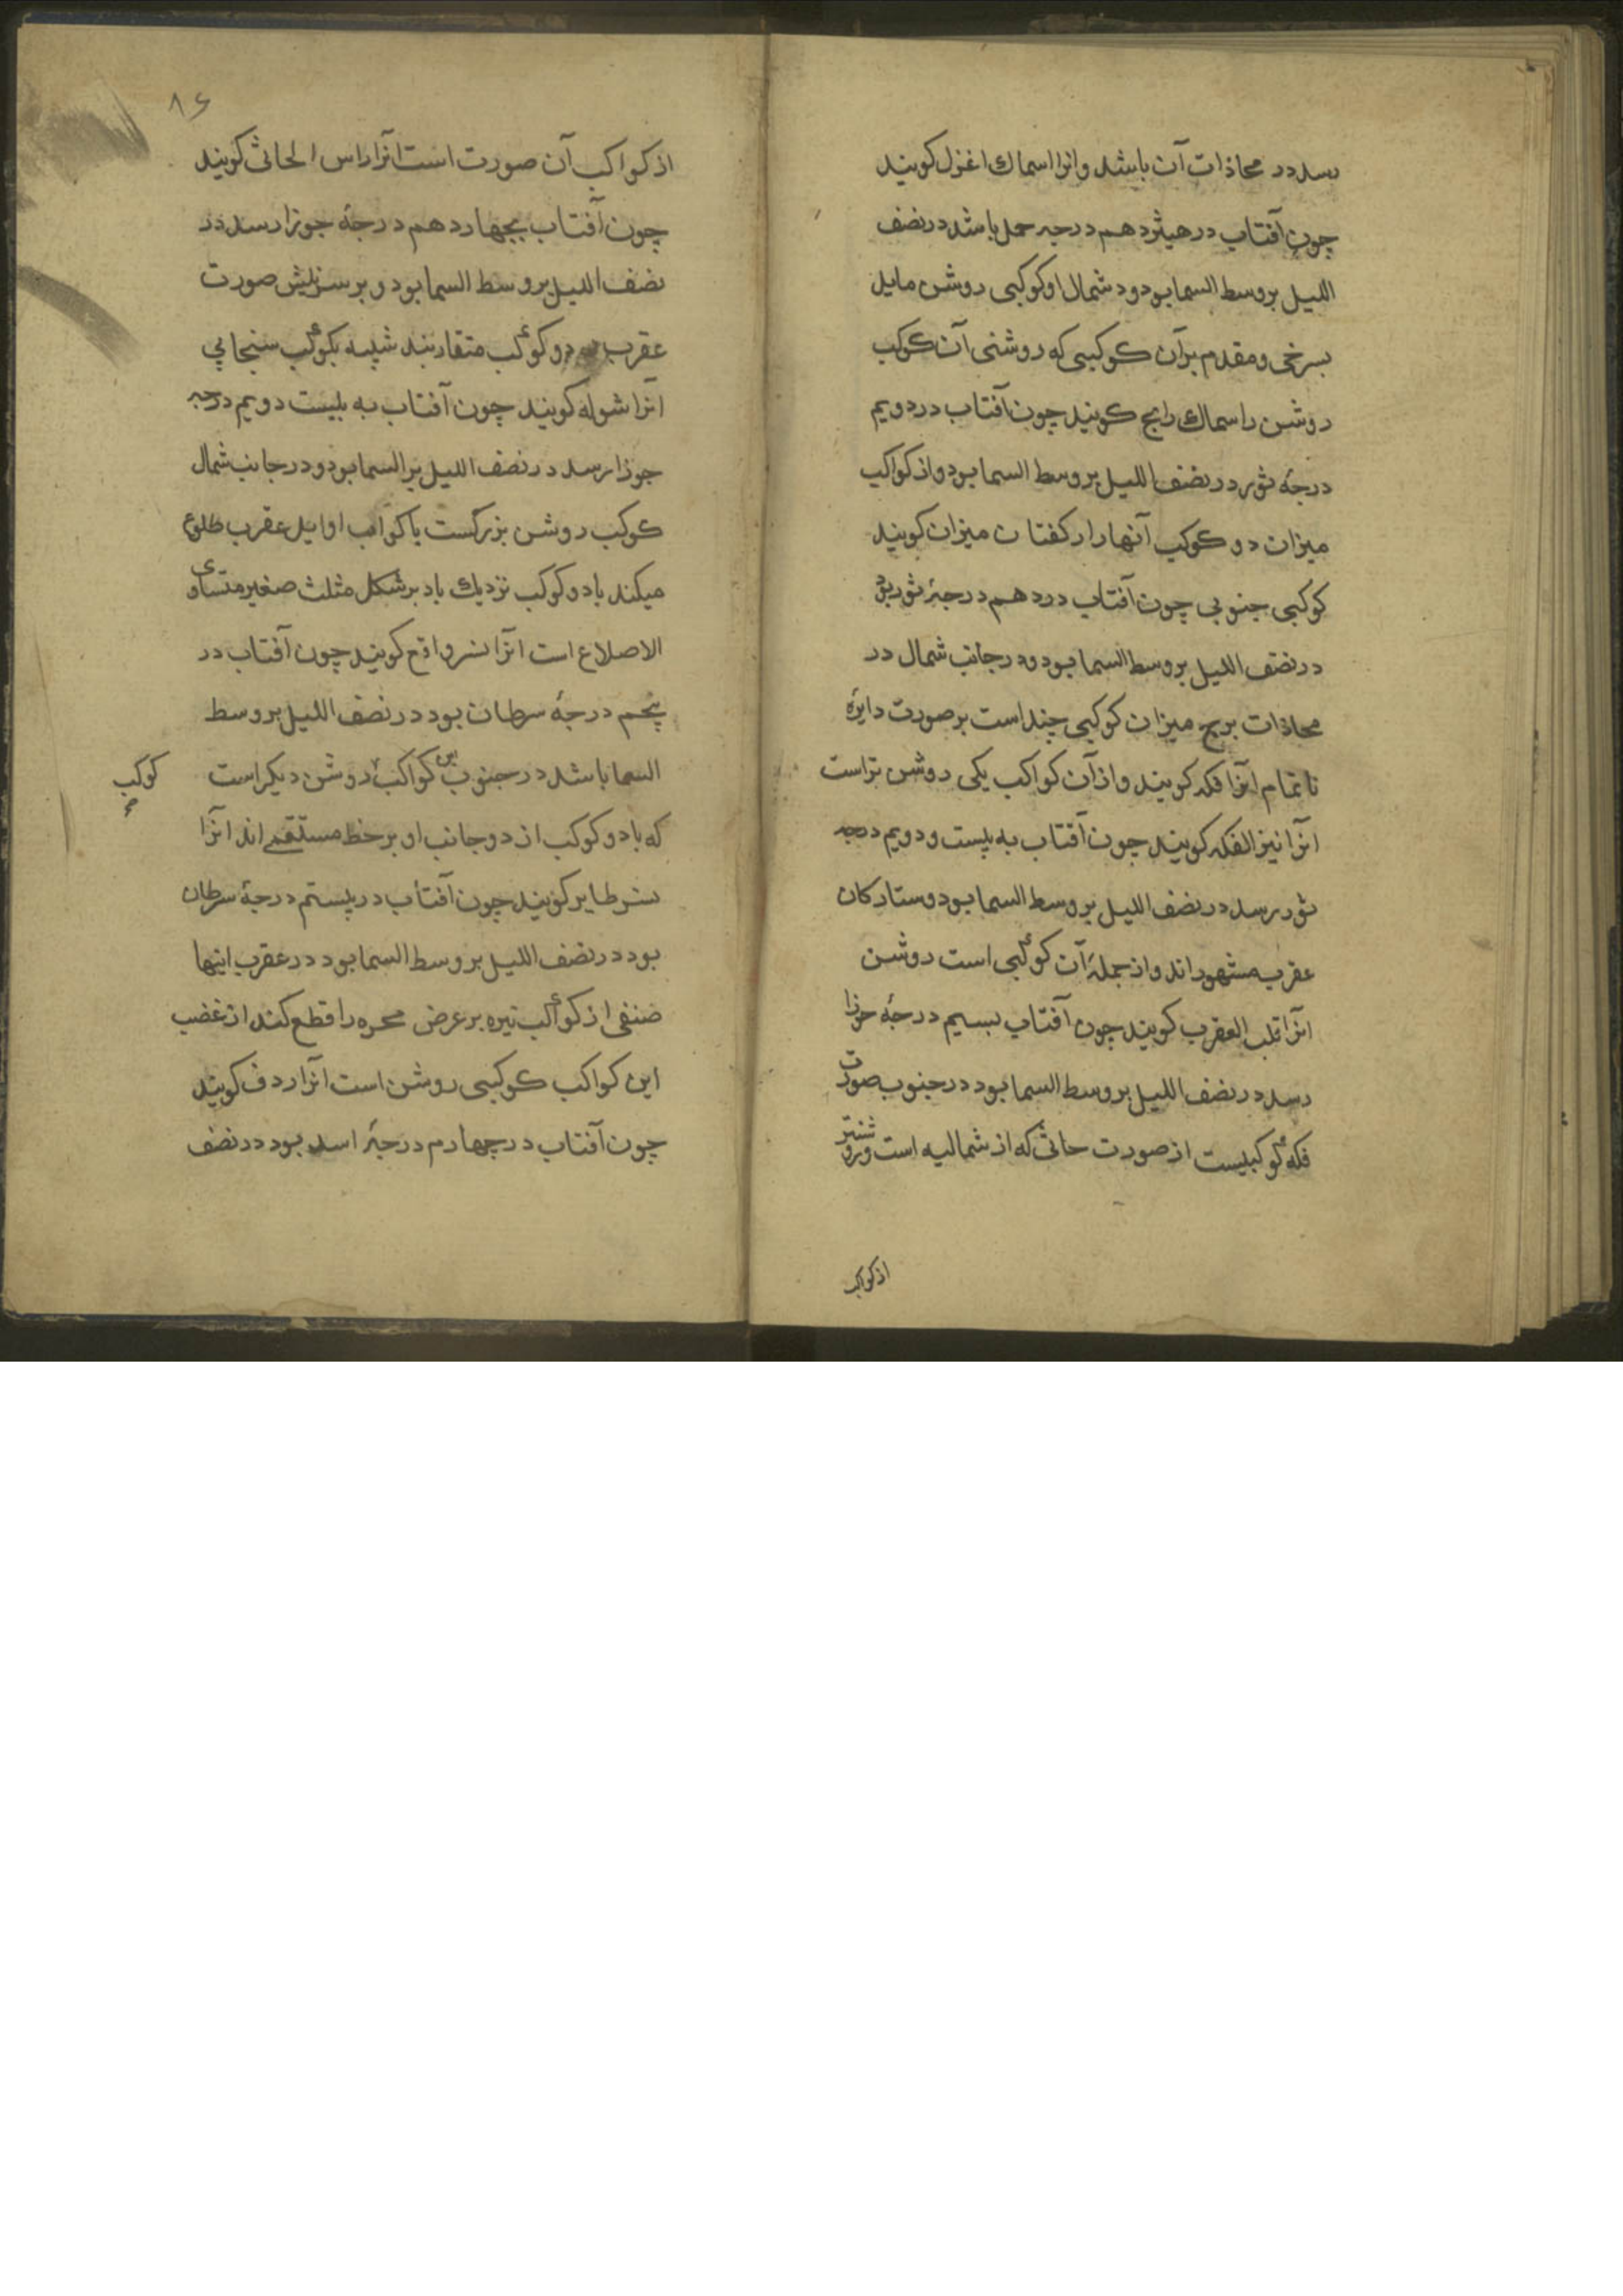 رسد در محاذات آن باشد وانرا اسماك اغزل كويند
چون آفتاب در هيژدهم درجه حمل باشد در نضف
الليل بروسط السما بود ودر شمال او كوكبى روشن مايل
بسرخى ومقدم برآن كوكبى كه روشنى آن كوكب
روشن را سماك رامح كويند چون آفتاب در دويم
درجۀ ثور در نضف الليل بروسط السما بود واز كواكب
ميزان دو كوكب آنها را ركفتان ميزان كويند
كوكبى جنوبى چون آفتاب در دهم درجۀ ثور بود
در نضف الليل بروسط السما بود ودر جانب شمال در
محاذات برج ميزان كوكبى چند است بر صورت دايرۀ
ناتمام انرا فكه كويند واز آن كواكب يكى روشن تر است
انرا نيز الفكه كويند چون آفتاب به بيست ودويم درجه
ثور رسد در نضف الليل بروسط السما بود وستاركان
عقرب مشهور اند واز جملۀ آن كوكبى است روشن
انرا قلب العقرب كويند چون آفتاب بسيم درجۀ جوزا
رسد در نضف الليل بروسط السما بود در جنوب صورت
فكه كوكبيست از صورت حاثى كه از شماليه است
از كواكب
۱۶
از كواكب آن صورت است انرا راس الحاثى كويند
چون آفتاب بچهاردهم درجۀ جوزا رسد در
نضف الليل بروسط السما بود وبر سر نيش صورت
عقرب دو كوكب متقاربند شبيه بكوكب سنجابي
انرا شوله كويند چون آفتاب به بيست دويم درجه
جوزا رسد در نضف الليل بر السما بود ودر جانب شمال
كوكب روشن بزركست با كواكب اوايل عقرب طلوع
ميكند با دو كوكب نزديك باد بر شكل مثلث صغير متساوى
الاصلاع است انرا نسر واقع كويند چون آفتاب در
پنجم درجۀ سرطان بود در نضف الليل بروسط
السما باشد در جنوب اين كواكب روشن ديكر است
كوكب
كه با دو كوكب از دو جانب او بر خط مستقيم اند انرا
نسر طاير كويند چون آفتاب در بيستم درجۀ سرطان
بود در نضف الليل بروسط السما بود در عقرب اينها
صنفى از كواكب تيره بر عرض مجره را قطع كند از غضب
اين كواكب كوكبى روشن است انرا ردف كويند
چون آفتاب در چهارم درجۀ اسد بود در نضف